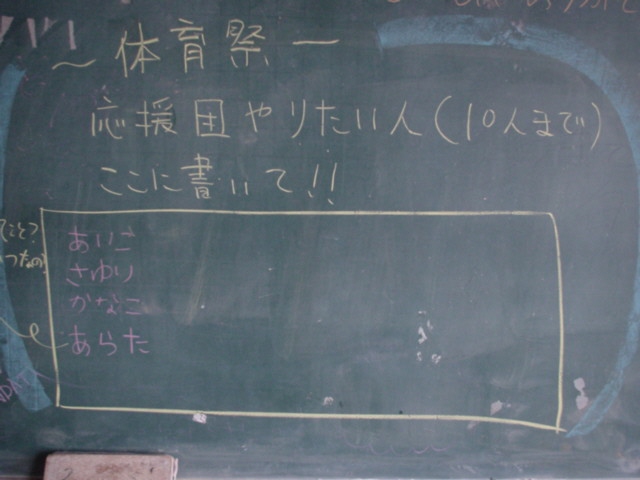 ～体育祭ー
応援団やりたい人(10人まで)
ここに書いて!!
あいこ
さゆり
かなこ
あらた